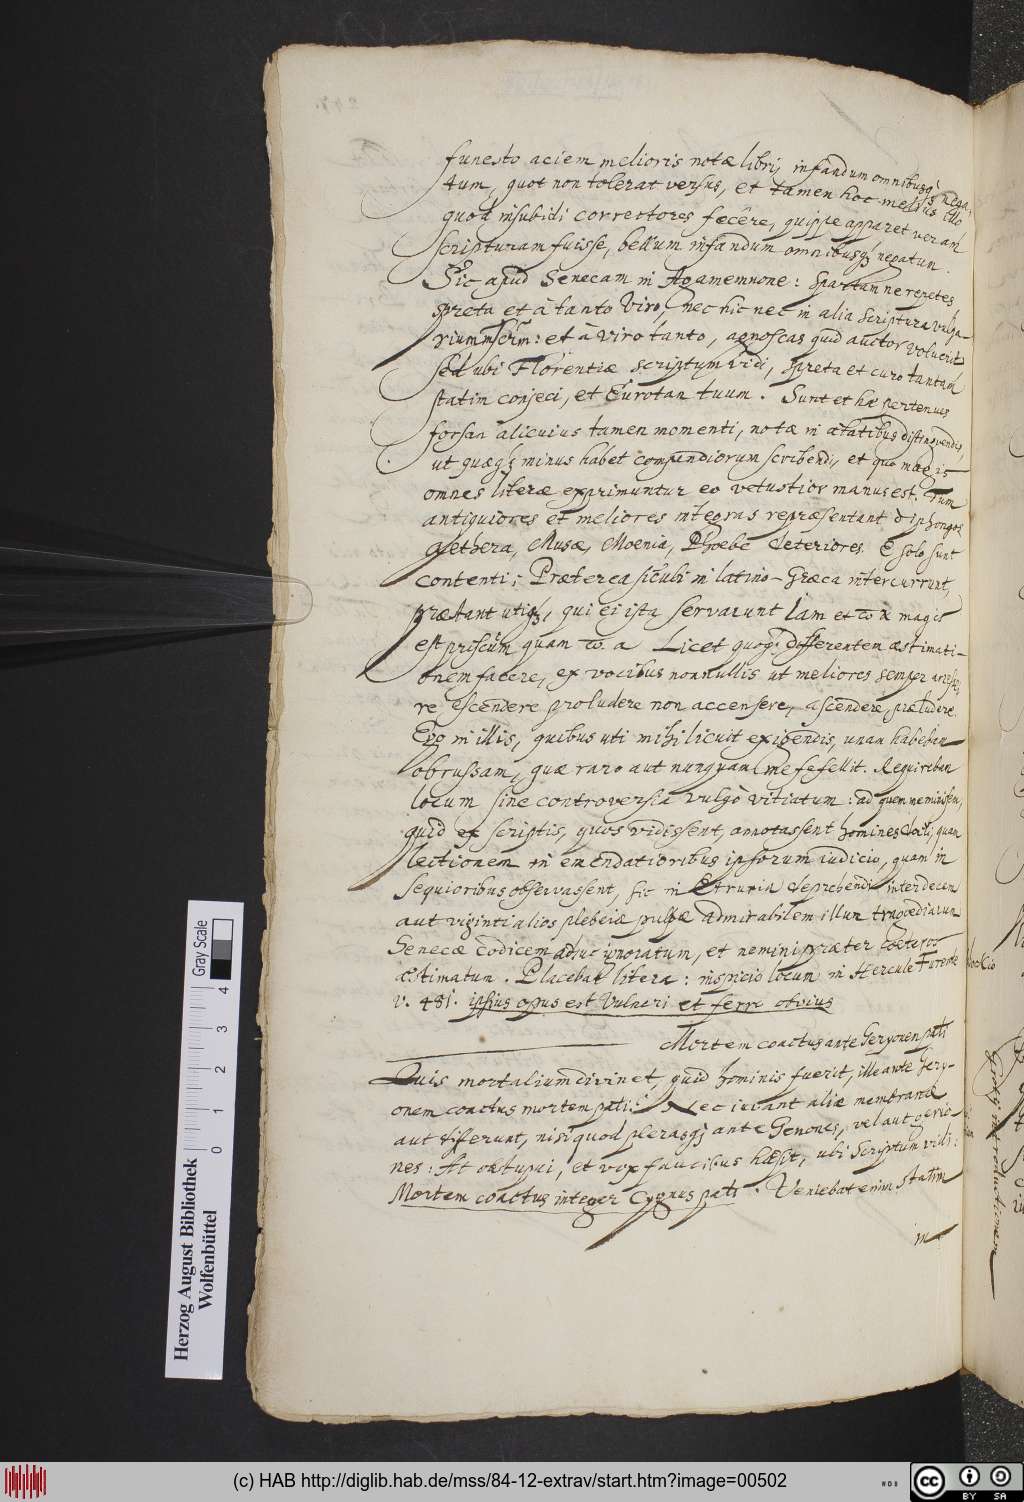 funesto aciem melioris notæ libri, infandum omnibusq́ nega,
tum, quot non tolerat versus, et tamen hoc melius illo
quod insubidi correctores fecêre, quippe apparet veram
scripturam fuisse, bellum infandum omnibusq́ negatum.
Sic apud Senecam in Agamemnone: Spartam ne repetes
spreta et à tanto Viro, nec hic nec in alia scriptura vulga-
et à viro tanto, agnoscas quid auctor voluerit
sed ubi Florentiæ scriptum vidi, spreta et curo tantam
statim conjeci, et Eurotan tuum. Sunt et hæ pertenues
forsan alicuius tamen momenti, notæ in ætatibus distinguendis,
ut quæq́ minus habet compendiorum scribendi, et quo magis
omnes literæ exprimuntur eo vetustior manus est. Tum
antiquiores et meliores integras repræsentant diphongos
Æthera, Musæ, Moenia, Phoebe deteriores E solo sunt
contenti; Præterea sicubi in latino-Græca intercurrunt,
præstant utiq́, qui ei ista servarunt Iam et magis
est priscum quam a Licet quoq́ differentem æstimati-
onem facere, ex vocibus nonnullis ut meliores semper
re escendere proludere non accensere, ascendere, præludere.
Ego in illis, quibus uti mihi licuit exigendis, unam habebam
obrussam, quæ raro aut nunquam me fefellit. Requirebam
locum sine controversia vulgò vitiatum: ad quem meminissem,
quid ex scriptis, quos vidissent, annotassent homines docti, quam
lectionem in emendatioribus ipsorum iudicio, quam in
sequioribus observassent, sic in Etruria deprehendi inter decem
aut viginti alios plebeiæ pulpæ admirabilem illum tragoediarum
Senecæ codicem adhuc ignoratum, et nemini præter
æstimatum. Placebat litera: inspicio locum in Hercule Furente
v. 481. ipsius opus est Vulneri et ferro obvius
Mortem coactus ante Geryonen pati
Quis mortalium divinet, quid hominis fuerit, ille ante Gery-
onem coactus mortem pati? Nec iuvant aliæ membranæ
aut differunt, nisi quod pleræq́ ante Genones, vel aut gerio-
nes: At obstupui, et vox faucibus hæsit, ubi Scriptum vidi:
Mortem coactus integer Cygnus pati. Veniebat enim statim
in
Herzog August Bibliothek
Wolfenbüttel
Gray Scale
0 1 2 3 4
(c) HAB http://diglib.hab.de/mss/84-12-extrav/start.htm?image=00502
cc BY SA